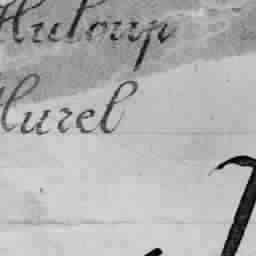 Huloup
Hurel